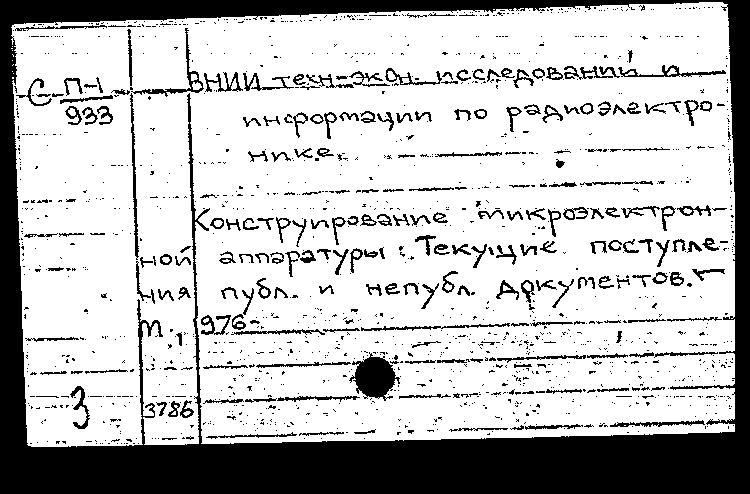 С П-1
933
ВНИИ техн-экон. исследований и
информации по радиоэлектро-
нике.
Конструирование микроэлектрон-
ной аппаратуры: Текущие поступле-
ния публ. и непубл. документов. –
М., 1976-
3 3786